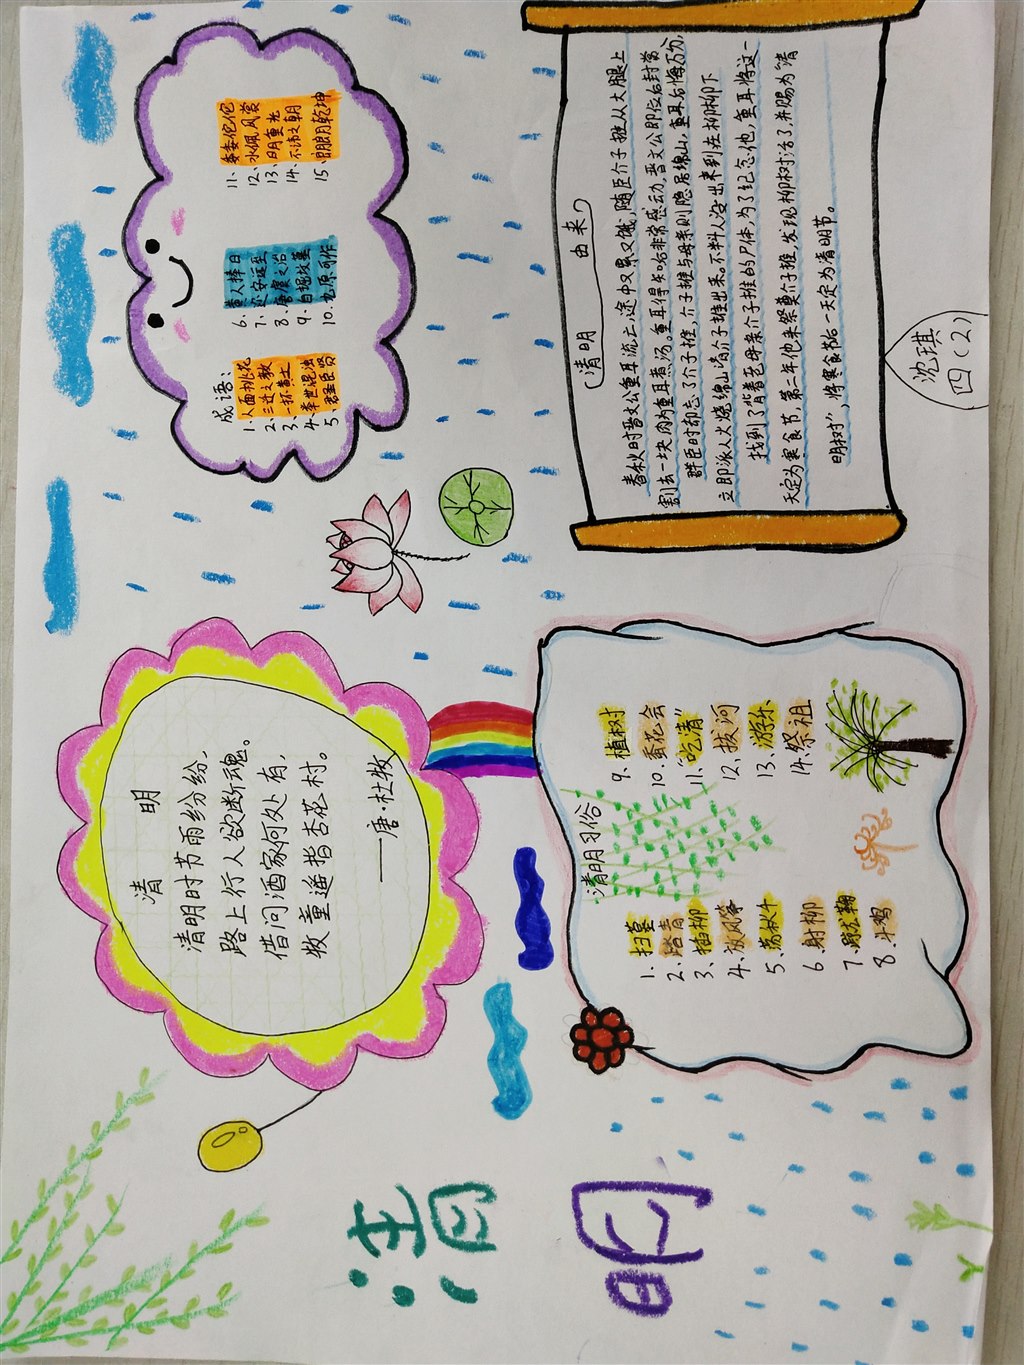 清明
清 明
清明时节雨纷纷,
路上行人欲断魂。
借问酒家何处有,
牧童遥指杏花村。
——唐·杜牧
成语:
1、人面桃花
2、三迁之教
3、一抔黄土
4、举世混浊
5、君圣臣贤
6、
7、
8、
9、自掘坟墓
10、九原可作
11、委委佗佗
12、水佩风裳
13、明重光
14、不讳之朝
15、朗朗乾坤
清明习俗
1、扫墓
2、踏青
3、插柳
4、放风筝
5、荡秋千
6、射柳
7、蹴鞠
8、斗鸡
9、植树
10、蚕花会
11、"吃清"
12、拔河
13、游乐
14、祭祖
清明 由来
春秋时晋文公重耳流亡途中又累又饿,随臣介子推从大腿上
割去一块肉为重耳煮汤。重耳得知后非常感动,晋文公即位后封赏
群臣时却忘了介子推,介子推与母亲则隐居绵山,重耳后悔万分,
立即派人火烧绵山请介子推出来。不料人没出来到在柳树下
找到了背着老母亲介子推的尸体,为了纪念他,重耳将这一
天定为寒食节,第二年他来祭奠介子推,发现柳树活了,并赐为"清
明树",将寒食节后一天定为清明节。
沈琪
四(2)